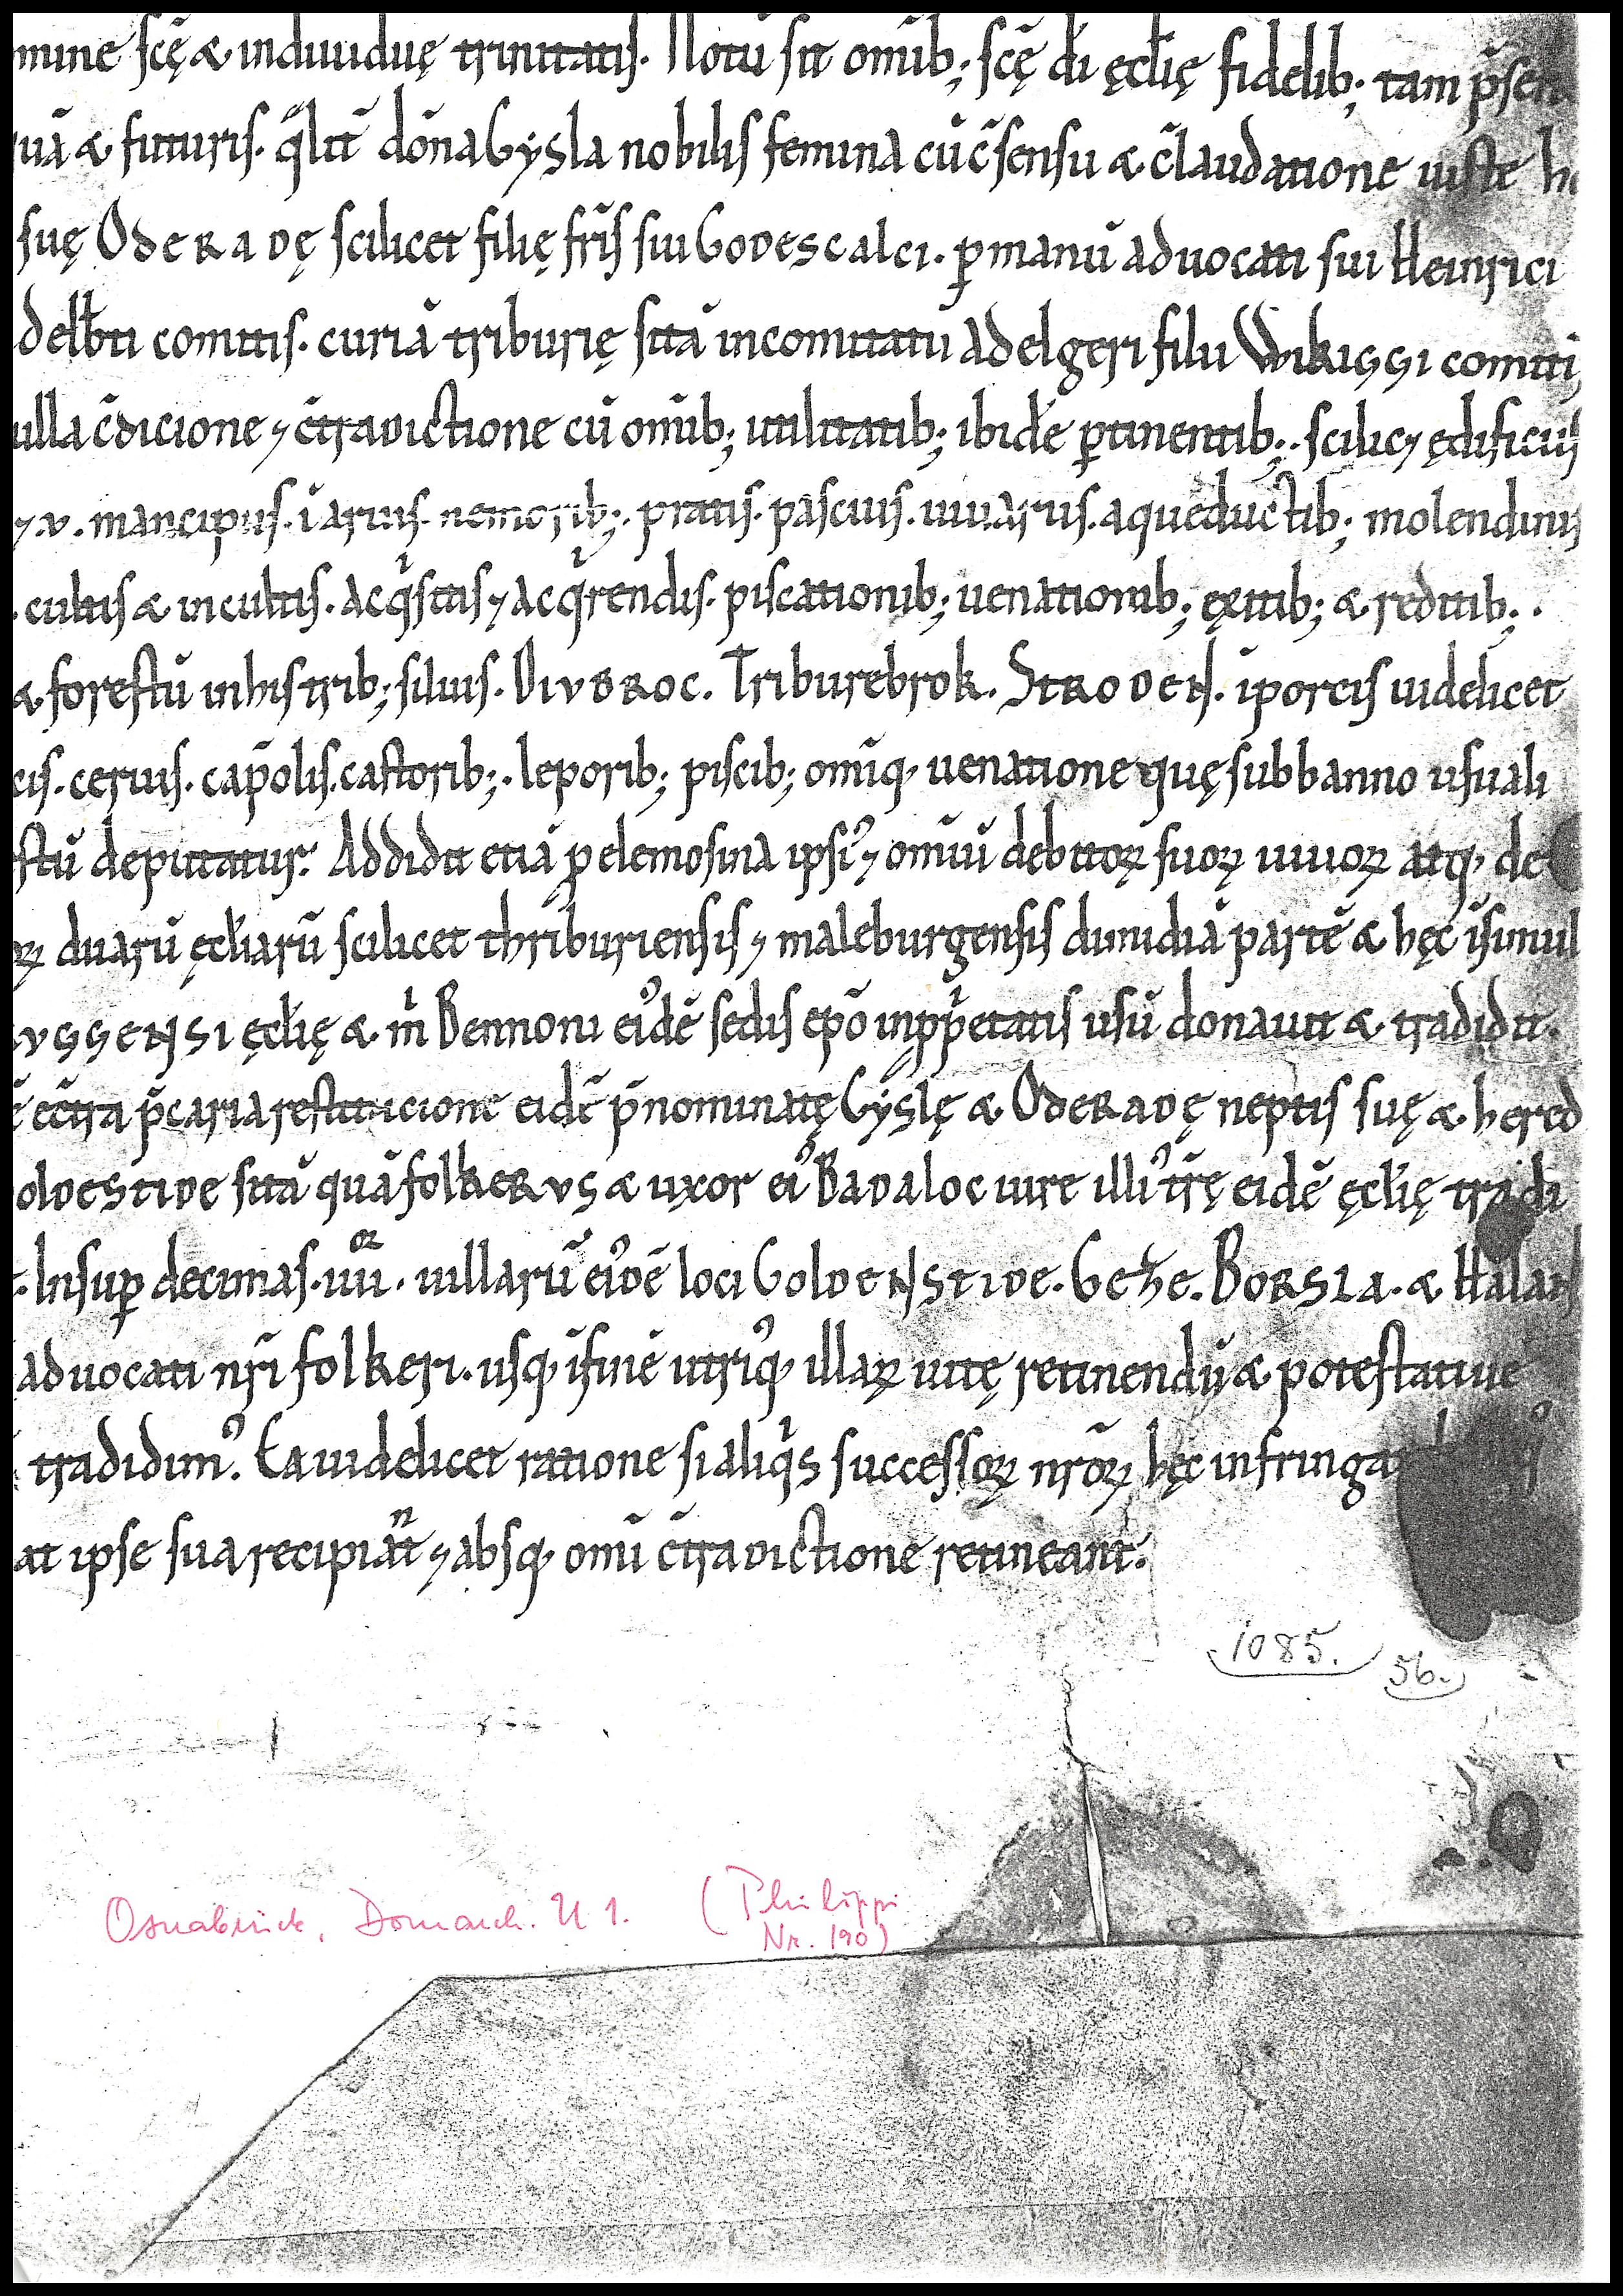 mine scę̄ & indiuiduę trinitatis. Notū sit om̄ib; scę̄ di̅ ęcłię fidelib; tam p̄sen
uā & futuris. qͥlit̄ dōna Gysla nobilis femina cū c̄sensu & c̄laudatione iuste he
suę Oderadę scilicet filię fr̄is sui Godescalci. ꝑ manū aduocati sui Heinrici
delb̄ti comitis. curiā triburię sitā in comitatu Adelgeri filii Wikiggi comiti
ulla c̄dicione ⁊ c̄tradictione cū om̄ib; utilitatib; ibidē ꝑtinentib;. scilic⁊ ędificiis
⁊ .v. mancipiis. ī aruis. nemorib;. pratis. pascuis. uiuariis. aquęductib; molendinis
. cultis & incultis. acqͥsitis ⁊ acqͥrendis. piscationib; uenationib; ęxitib; & reditib;.
& forestū in his trib; siluis. Divbroc. Triburebrok. Stroden. ī porcis uidelicet
cis. ceruis. cap̄olis. castorib;. leporib; piscib; om̄iq, uenatione quę sub banno usuali
stū deputatur. Addidit etiā ꝑ elemosina ipsiꝰ ⁊ om̄iū debitoꝝ suoꝝ uiuoꝝ atq, de
oꝝ duarū ęcłiarū scilicet thriburiensis ⁊ maleburgensis dimidiā partē & hęc īsimul
vggensi ęcłię & m̄ Bennoni eiꝰdē sedis ep̄o in ꝓpͥetatis usū donauit & tradidit.
ē ec̄tra p̄caria restitucione eidē p̄nominatę Gyslę & Oderadę neptis suę & hered
oldestide sitā quā folkerus & uxor eiꝰ Badaloc iure illiꝰ tr̄ę eidē ęcłię tradi
. Insuꝑ decimas .iiii. oꝝ uillarū eiꝰdē loci Goldenstide. Gethe. Borsla. & Halan
aduocati nr̄i folkeri. usq, ī finē utriꝰq, illaꝝ uitę retinendā & potestatiue
tradidimꝰ. Ea uidelicet ratione si aliqͥs successoꝝ nr̄oꝝ hęc infringa
at ipse sua recipiant ⁊ absq, om̄i c̄tradictione retineant.
1085.
56.
Osnabrück, Domarch. U 1. (Philippi
Nr. 190)